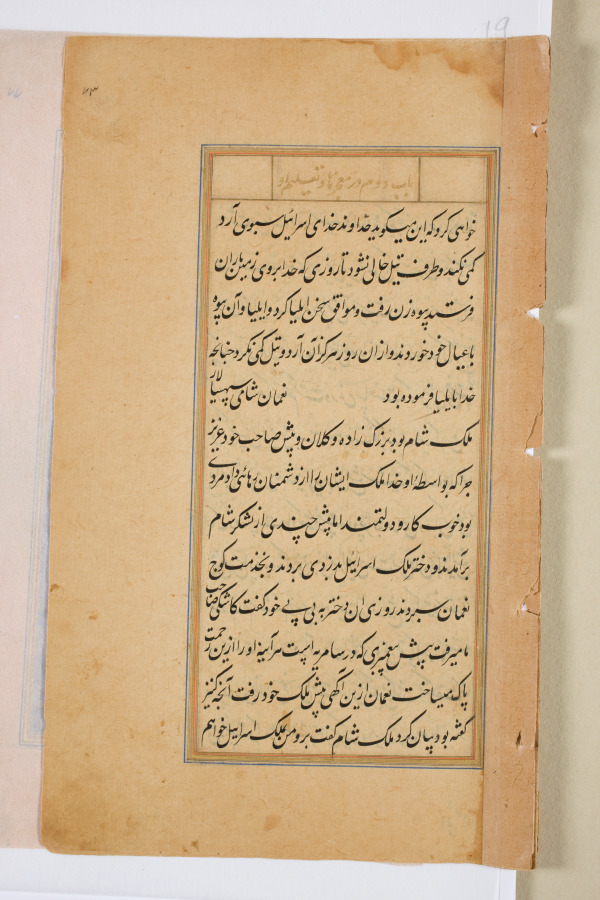 19
۷۳
باب دوم در معجزها و تعلیم او
خواهی کرد که این میکوید خداوند خدای اسرائیل سبوی آرد
کمی نکند و ظرف تیل خالی نشود تا روزی که خدا بروی زمین باران
فرستد بیوه زن رفت و موافق سخن ایلیا کرد و ایلیا و آن بیوه
با عیال خود خوردند و ازان روز هرکز آن آرد و تیل کمی نکرد چنانچه
خدا بایلیا فرموده بود نعمان شامی سپهسالار
ملک شام بود بزرک زاده و کلان و پیش صاحب خود عزیز
چرا که بواسطهٔ او خدا ملک ایشان را از دشمنان رهائی داد مردی
بود خوب کار و دولتمند اما پیش چندی از لشکر شام
برآمدند و دختر ملک اسرائیل بدزدی بردند و بخدمت کوچ
نعمان سپردند روزی ان دختر به بی بی خود کفت کاشکی صاحب
ما میرفت پیش پیغمبری که در سامریه است هرآیینه او را ازین زحمت
پاک میساخت نعمان ازین آکهی پیش ملک خود رفت آنچه کنیز
کفته بود بیان کرد ملک شام کفت برو من بملک اسرائیل خواهم